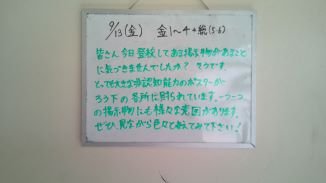 9/13(金) 金1〜4+総(5.6)
皆さん、今日登校してある掲示物があることに
気づきませんでしたか？ そうです。
とっても大きな非認知能力のポスターが
ろう下の各所に貼られています。一つ一つ
の掲示物にも様々な意図があります。
ぜひ、見ながら色々と考えてみて下さい！